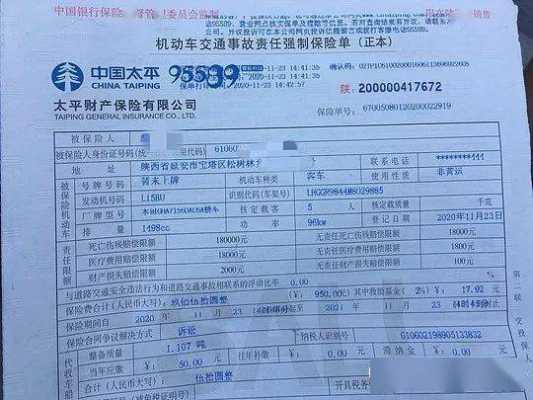 中国银行保险监督管理委员会监制
机动车交通事故责任强制保险单（正本）
中国太平
CHINA TAIPING
95589
2020-11-23 14:41:35
保单打印时间: 2020-11-23 14:42:57
陕: 200000417672
太平财产保险有限公司
TAIPING GENERAL INSURANCE CO., LTD.
保险单号: 67005080120200022919
被保险人
被保险人身份证号码(统一 代码) 61060
地址 陕西省延安市宝塔区松树林 联系电话 *******111
号牌号码 暂未上牌 机动车种类 客车 使用性质 非营运
发动机号码 L15BU 识别代码(车架号) LHGGR9844M8029885
厂牌型号 核定载客 5 人 核定载质量 千克
排量 1498cc 功率 96kw 登记日期 2020年11月23日
死亡伤残赔偿限额 180000元 无责任死亡伤残赔偿限额 18000元
医疗费用赔偿限额 18000元 无责任医疗费用赔偿限额 1800元
财产损失赔偿限额 2000元 无责任财产损失赔偿限额 100元
与道路交通安全违法行为和道路交通事故相联系的浮动比率 0.00
保险费合计(人民币大写): 玖佰伍拾圆整 (¥: 950.00元) 其中救助基金 (2%) ¥: 17.92 元
保险期间自 2020 年 11 月 23 2021 年 11 月 23
保险合同争议解决方式 诉讼
整备质量 1.107 吨 纳税人识别号 610602198905133832
当年应缴 ¥: 50.00 元 往年补缴 ¥: 0.00 元 滞纳金 ¥: 0.00 元
合计(人民币大写): 伍拾圆整
开具税务